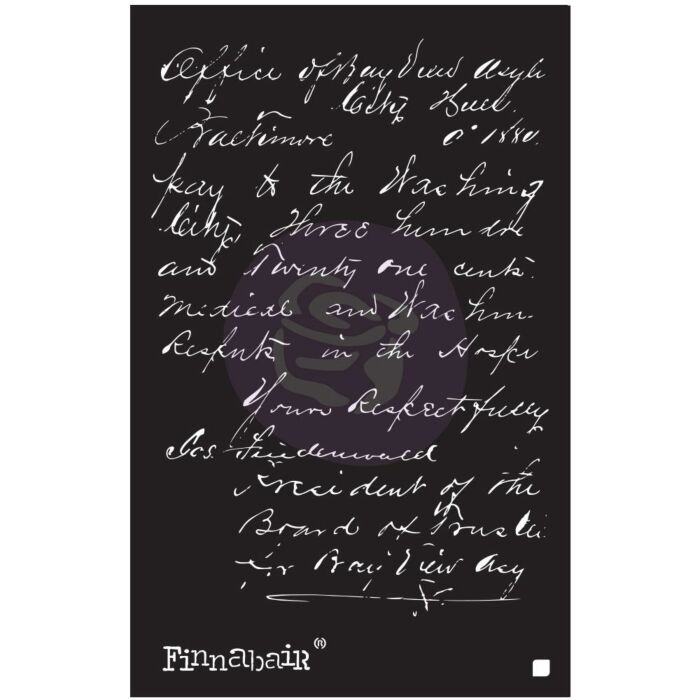 Office of Bay View Asyl
City Hall.
Baltimore 1880.
pay to the Washing
City, Three hundre
and Twenty one cents.
Medical and Washin
in the Hospi
Yours Respectfully
Jos. Friedenwald
President of the
Board of Truste
for Bay View Asy
Finnabair®